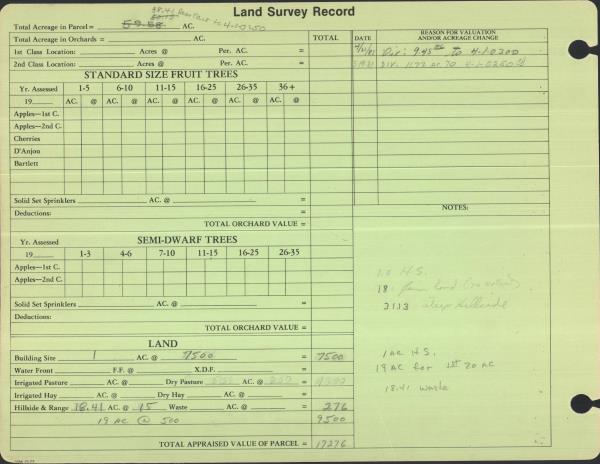 Land Survey Record
38.41
Total Acreage in Parcel = 59.58 AC. to 4-1-0250
Total Acreage in Orchards = AC. TOTAL
DATE REASON FOR VALUATION AND/OR ACREAGE CHANGE
1st Class Location: Acres @ Per. AC. =
Div: 9.45 ac to 4-1-0200
2nd Class Location: Acres @ Per. AC. =
Div. 11.72 ac to 4-1-0250
STANDARD SIZE FRUIT TREES
Yr. Assessed 1-5 6-10 11-15 16-25 26-35 36+
19 AC. @ AC. @ AC. @ AC. @ AC. @ AC. @
Apples—1st C.
Apples—2nd C.
Cherries
D'Anjou
Bartlett
Solid Set Sprinklers AC. @ =
Deductions: =
TOTAL ORCHARD VALUE =
NOTES:
SEMI-DWARF TREES
Yr. Assessed
19 1-3 4-6 7-10 11-15 16-25 26-35
Apples—1st C.
Apples—2nd C.
1.0 H.S.
18
31.13 steep hillside
Solid Set Sprinklers AC. @ =
Deductions: =
TOTAL ORCHARD VALUE =
LAND
Building Site 1 AC. @ 7500 = 7500
1 AC H.S.
Water Front F.F. @ X.D.F. =
19 AC for 1st 20 AC
Irrigated Pasture AC. @ Dry Pasture AC. @ =
Irrigated Hay AC. @ Dry Hay AC. @ =
18.41 waste
Hillside & Range 18.41 AC. @ 15 Waste AC. @ = 276
19 AC @ 500 9500
TOTAL APPRAISED VALUE OF PARCEL = 17276